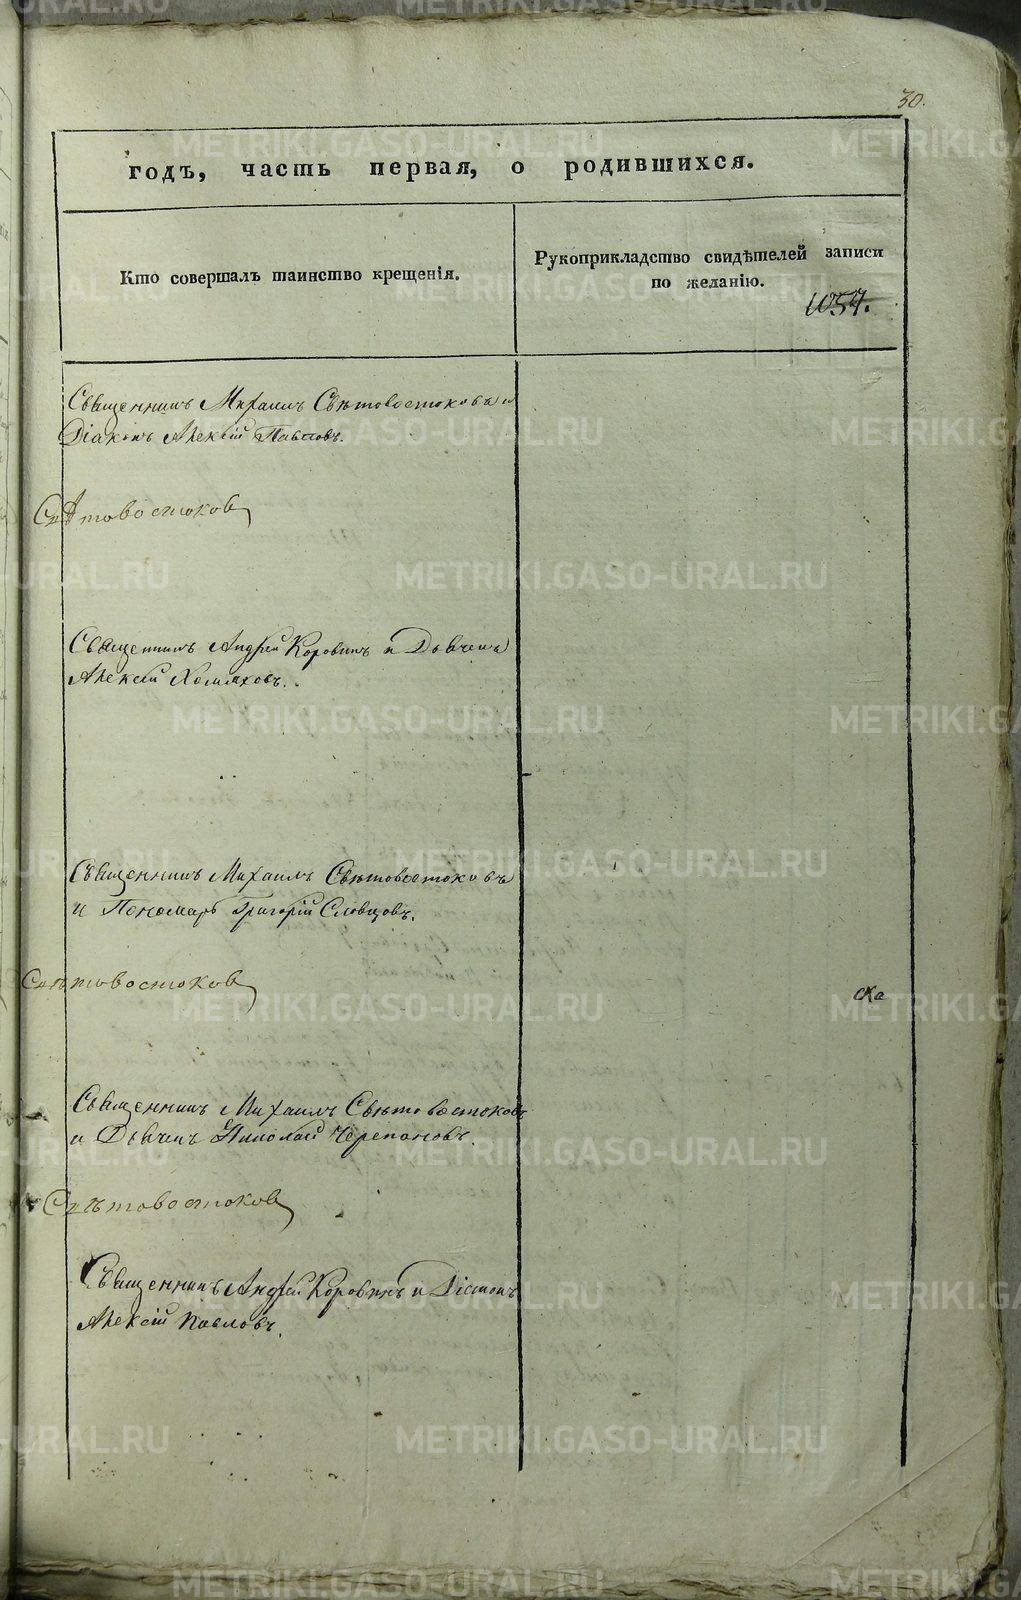 30.
годъ, часть первая, о родившихся.
Кто совершалъ таинство крещенія.
Рукоприкладство свидѣтелей записи
по желанію.
1057.
Священникъ Михаилъ Свѣтовостоковъ и
Діаконъ Алексій Павловъ.
Свѣтовостоков
Священникъ Андрей Коровинъ и Дьячекъ
Алексій Холмаховъ.
Священникъ Михаилъ Свѣтовостоковъ
и Пономарь Григорій Словцовъ.
Свѣтовостоков
ска
Священникъ Михаилъ Свѣтовостоковъ
и Дьячекъ Николай Черепановъ.
Свѣтовостоков
Священникъ Андрей Коровинъ и Діаконъ
Алексій Павловъ.
METRIKI.GASO-URAL.RU